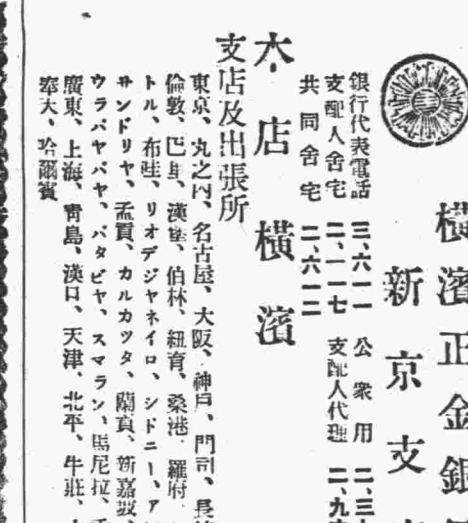 横濱正金銀
新京支
銀行代表電話 三、六一一 公衆用 二、三
支配人舍宅 二、一一七 支配人代理 二、九
共同舍宅 二、六一二
本店 橫濱
支店及出張所
東京、丸之內、名古屋、大阪、神戶、門司、長
倫敦、巴里、漢堡、伯林、紐育、桑港、羅府、
トル、布哇、リオデジャネイロ、シドニー、ア
サンドリヤ、孟買、カルカッタ、蘭貢、新嘉坡、
ウラバヤバヤ、バタビヤ、スマラン、馬尼拉、
廣東、上海、靑島、漢口、天津、北平、牛莊、
奉天、哈爾賓